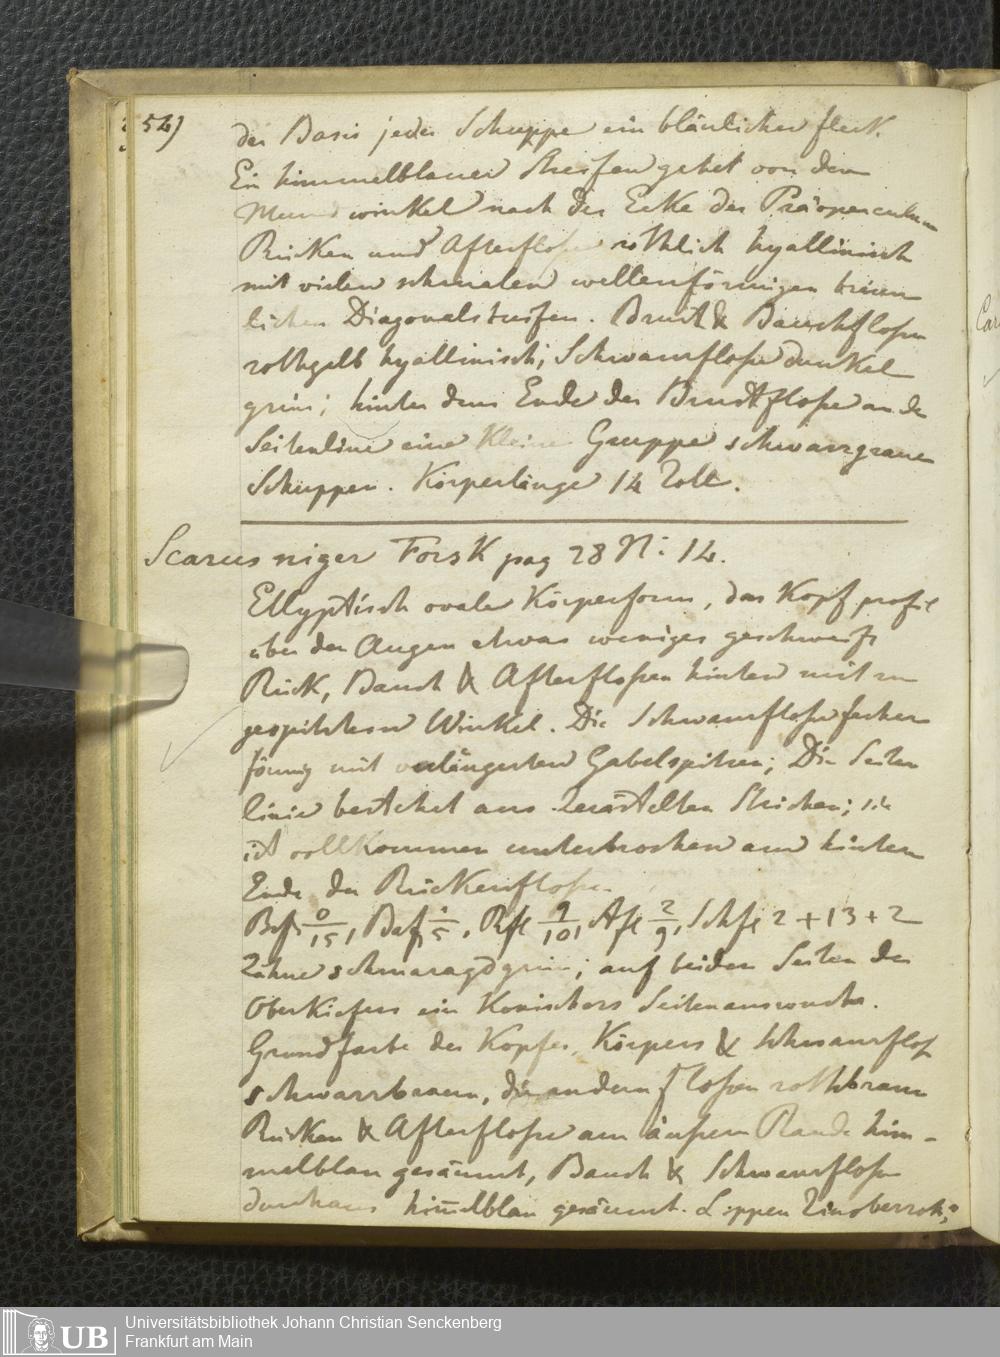 54)
der Basis jeder Schuppe ein bläulicher fleck.
Ein himmelblauer Streifen gehet von dem
Mundwinkel nach der Ecke des Präoperculum
Rücken und Afterfloße röthlich hyallinisch
mit vielen schmalen wellenförmigen bräun
lichen Diagonalstreifen. Brust & Bauchfloßen
rothgelb hyallinisch; Schwanzfloße dunkel
grün; hinter dem Ende der Brustfloße an der
Seitenlinie eine kleine Gruppe schwarzgrauer
Schuppen. Körperlänge 14 Zoll.
Scarus niger Forsk pag 28 N: 14.
Ellyptisch ovale Körperform, das Kopf profil
über den Augen etwas weniges geschweift
Rück, Bauch & Afterfloßen hinten mit zu
gespitztem Winkel. Die Schwanzfloße fecher
förmig mit verlängerten Gabelspitzen; Die Seiten
linie bestehet aus zerästelten Strichen; sie
ist vollkommen unterbrochen am hintern
Ende der Rückenfloße.
Brfl 0/15, Baf 1/5, Rfl 9/10, Afl 2/9, Schfl 2 + 13 + 2
Zähne schmaragdgrün; auf beiden Seiten des
Oberkiefers ein konischers Seitenauswuchs.
Grundfarbe des Kopfes, Körpers & Schwanzfloß
schwarzbraun, die andern floßen rothbraun
Rücken & Afterfloße am äußern Rande him-
melblau gesäumt, Bauch & Schwanzfloße
durchaus him̅elblau gesäumt. Lippen Zinoberroth;
Universitätsbibliothek Johann Christian Senckenberg
Frankfurt am Main
UB